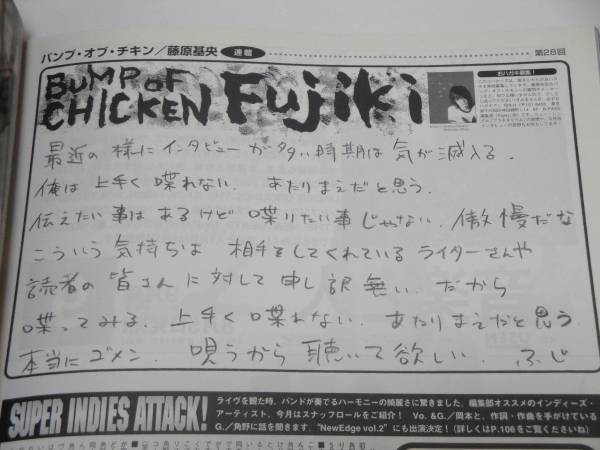 バンプ・オブ・チキン／藤原基央 連載 第28回
BUMP OF CHICKEN Fujiki
おハガキ募集！
最近の様にインタビューが多い時期は気が滅入る。
俺は上手く喋れない。あたりまえだと思う。
伝えたい事はあるけど喋りたい事じゃない。傲慢だな
こういう気持ちは相手をしてくれているライターさんや
読者の皆さんに対して申し訳無い。だから
喋ってみる。上手く喋れない。あたりまえだと思う。
本当にゴメン。唄うから聴いて欲しい。ふじ
SUPER INDIES ATTACK!
ライヴを観た時、バンドが奏でるハーモニーの綺麗さに驚きました。編集部オススメのインディーズ・
アーティスト、今月はスナッフロールをご紹介！ Vo. &G.／岡本と、作詞・作曲を手がけている
G.／角野に話を聞きます。“NewEdge vol.2”にも出演決定！（詳しくはP.106をご覧くださいね）